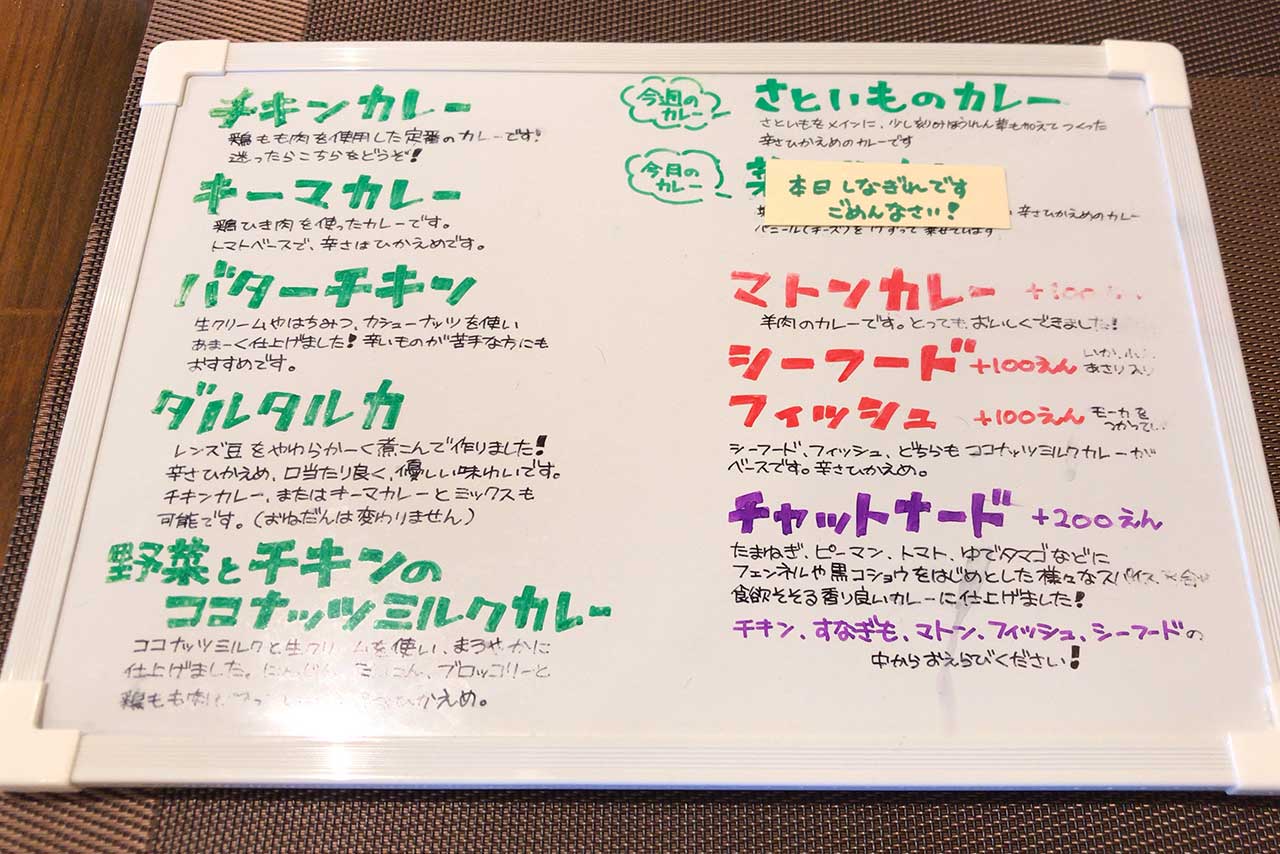 チキンカレー
鶏もも肉を使用した定番のカレーです!
迷ったらこちらをどうぞ!
キーマカレー
鶏ひき肉を使ったカレーです。
トマトベースで、辛さはひかえめです。
バターチキン
生クリームやはちみつ、カシューナッツを使い
あまーく仕上げました!辛いものが苦手な方にも
おすすめです。
ダルタルカ
レンズ豆をやわらかーく煮こんで作りました!
辛さひかえめ、口当たり良く、優しい味わいです。
チキンカレー、またはキーマカレーとミックスも
可能です。(おねだんは変わりません)
野菜とチキンの
ココナッツミルクカレー
ココナッツミルクと生クリームを使い、まろやかに
仕上げました。にんじん、ブロッコリーと
鶏もも肉 ひかえめ。
今週の
カレー
さといものカレー
さといもをメインに、少し刻みほうれん草も加えてつくった
辛さひかえめのカレーです
今月の
カレー
本日しなぎれです
ごめんなさい!
辛さひかえめのカレー
パニール(チーズ)を
乗せています
マトンカレー +100
羊肉のカレーです。とってもおいしくできました!
シーフード +100えん
いか、
あさり入り
フィッシュ +100えん
モーカを
つかって
シーフード、フィッシュ、どちらもココナッツミルクカレーが
ベースです。辛さひかえめ。
チャットナード +200えん
たまねぎ、ピーマン、トマト、ゆでタマゴなどに
フェンネルや黒コショウをはじめとした様々なスパイス、
食欲そそる香り良いカレーに仕上げました!
チキン、すなぎも、マトン、フィッシュ、シーフードの
中からおえらびください!